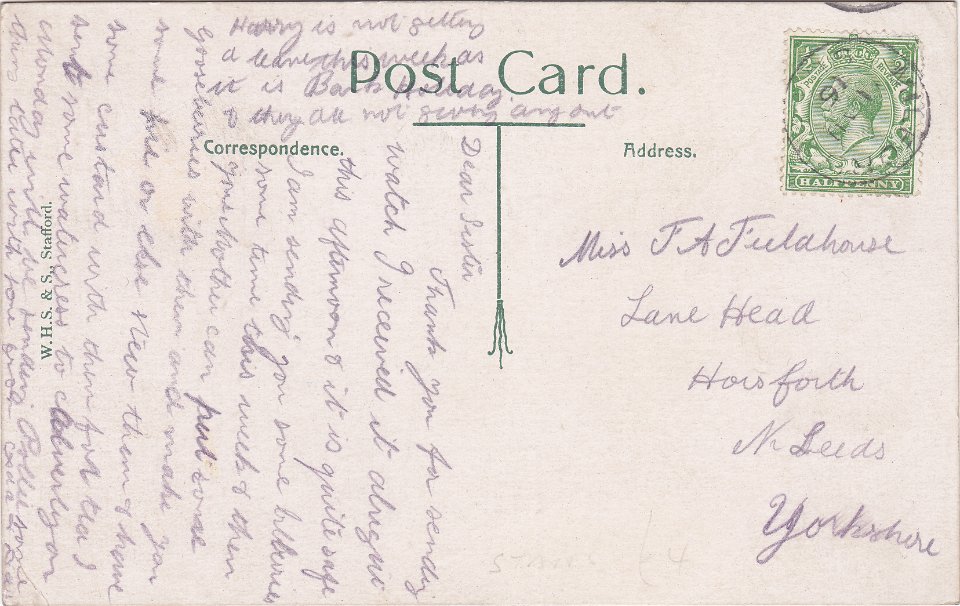 Post Card.
Correspondence.
Address.
HALFPENNY
W.H.S. & S., Stafford.
Miss F A Fieldhouse
Lane Head
Horsforth
Nr Leeds
Yorkshire
Dear Sister
Thank you for sending
watch I received it alright
this afternoon & it is quite safe
I am sending you some bilberries
some time this week & then
your Mother can put some
Gooseberries with them and make you
some or else stew them & have
some custard with them for tea I
sent some watercress to on
Monday will be sending Pollie some
later with some
Harry is not getting
a leave this week as
it is Bank Holiday
& they are not giving any out